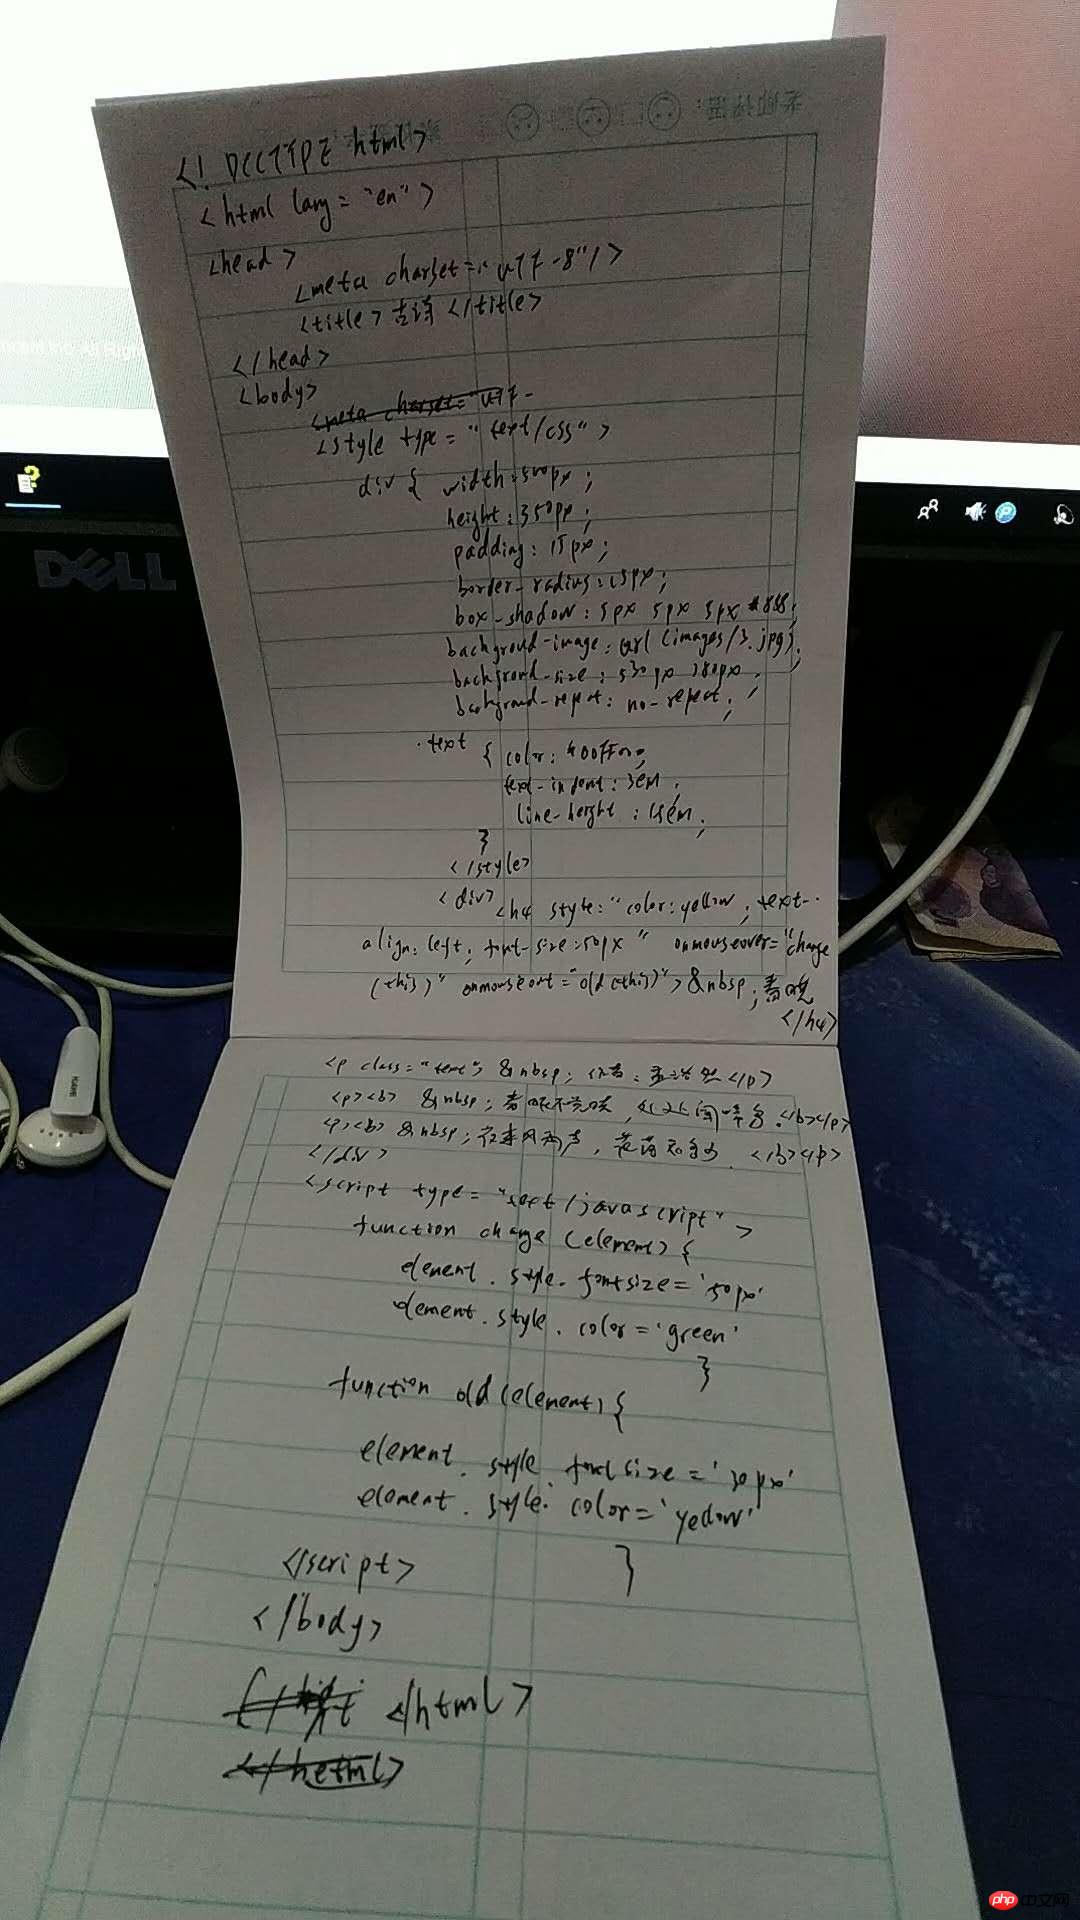 <! DCCTYPE html>
<html lang = "en" >
<head >
<meta charset="utf-8"/>
<title>古诗</title>
</head>
<body>
<meta charset="utf-
<style type = "text/css" >
div { width:500px;
height:350px;
padding:15px;
border-radius:15px;
box-shadow:5px 5px 5px #888;
backgroud-image:url(images/3.jpg);
backgroud-size:530px 380px;
backgroud-repeat:no-repeat;
.text { color:#00ff00;
text-indent:3em;
line-height:1.8em;
}
</style>
<div>
<h4 style:"color:yellow;text-
align:left;font-size:50px" onmouseover="change
(this)" onmouseout="old(this)">&nbsp;春晓
</h4>
<p class="text"> &nbsp;作者:孟浩然</p>
<p><b> &nbsp;春眠不觉晓,处处闻啼鸟.</b></p>
<p><b> &nbsp;夜来风雨声,花落知多少.</b></p>
</div>
<script type="text/javascript">
function change (element) {
element.style.fontsize='50px'
element.style.color='green'
}
function old (element) {
element.style.fontsize='30px'
element.style.color='yellow'
}
</script>
</body>
</html>
</hetml>
DELL
HUAWEI
php 中文网